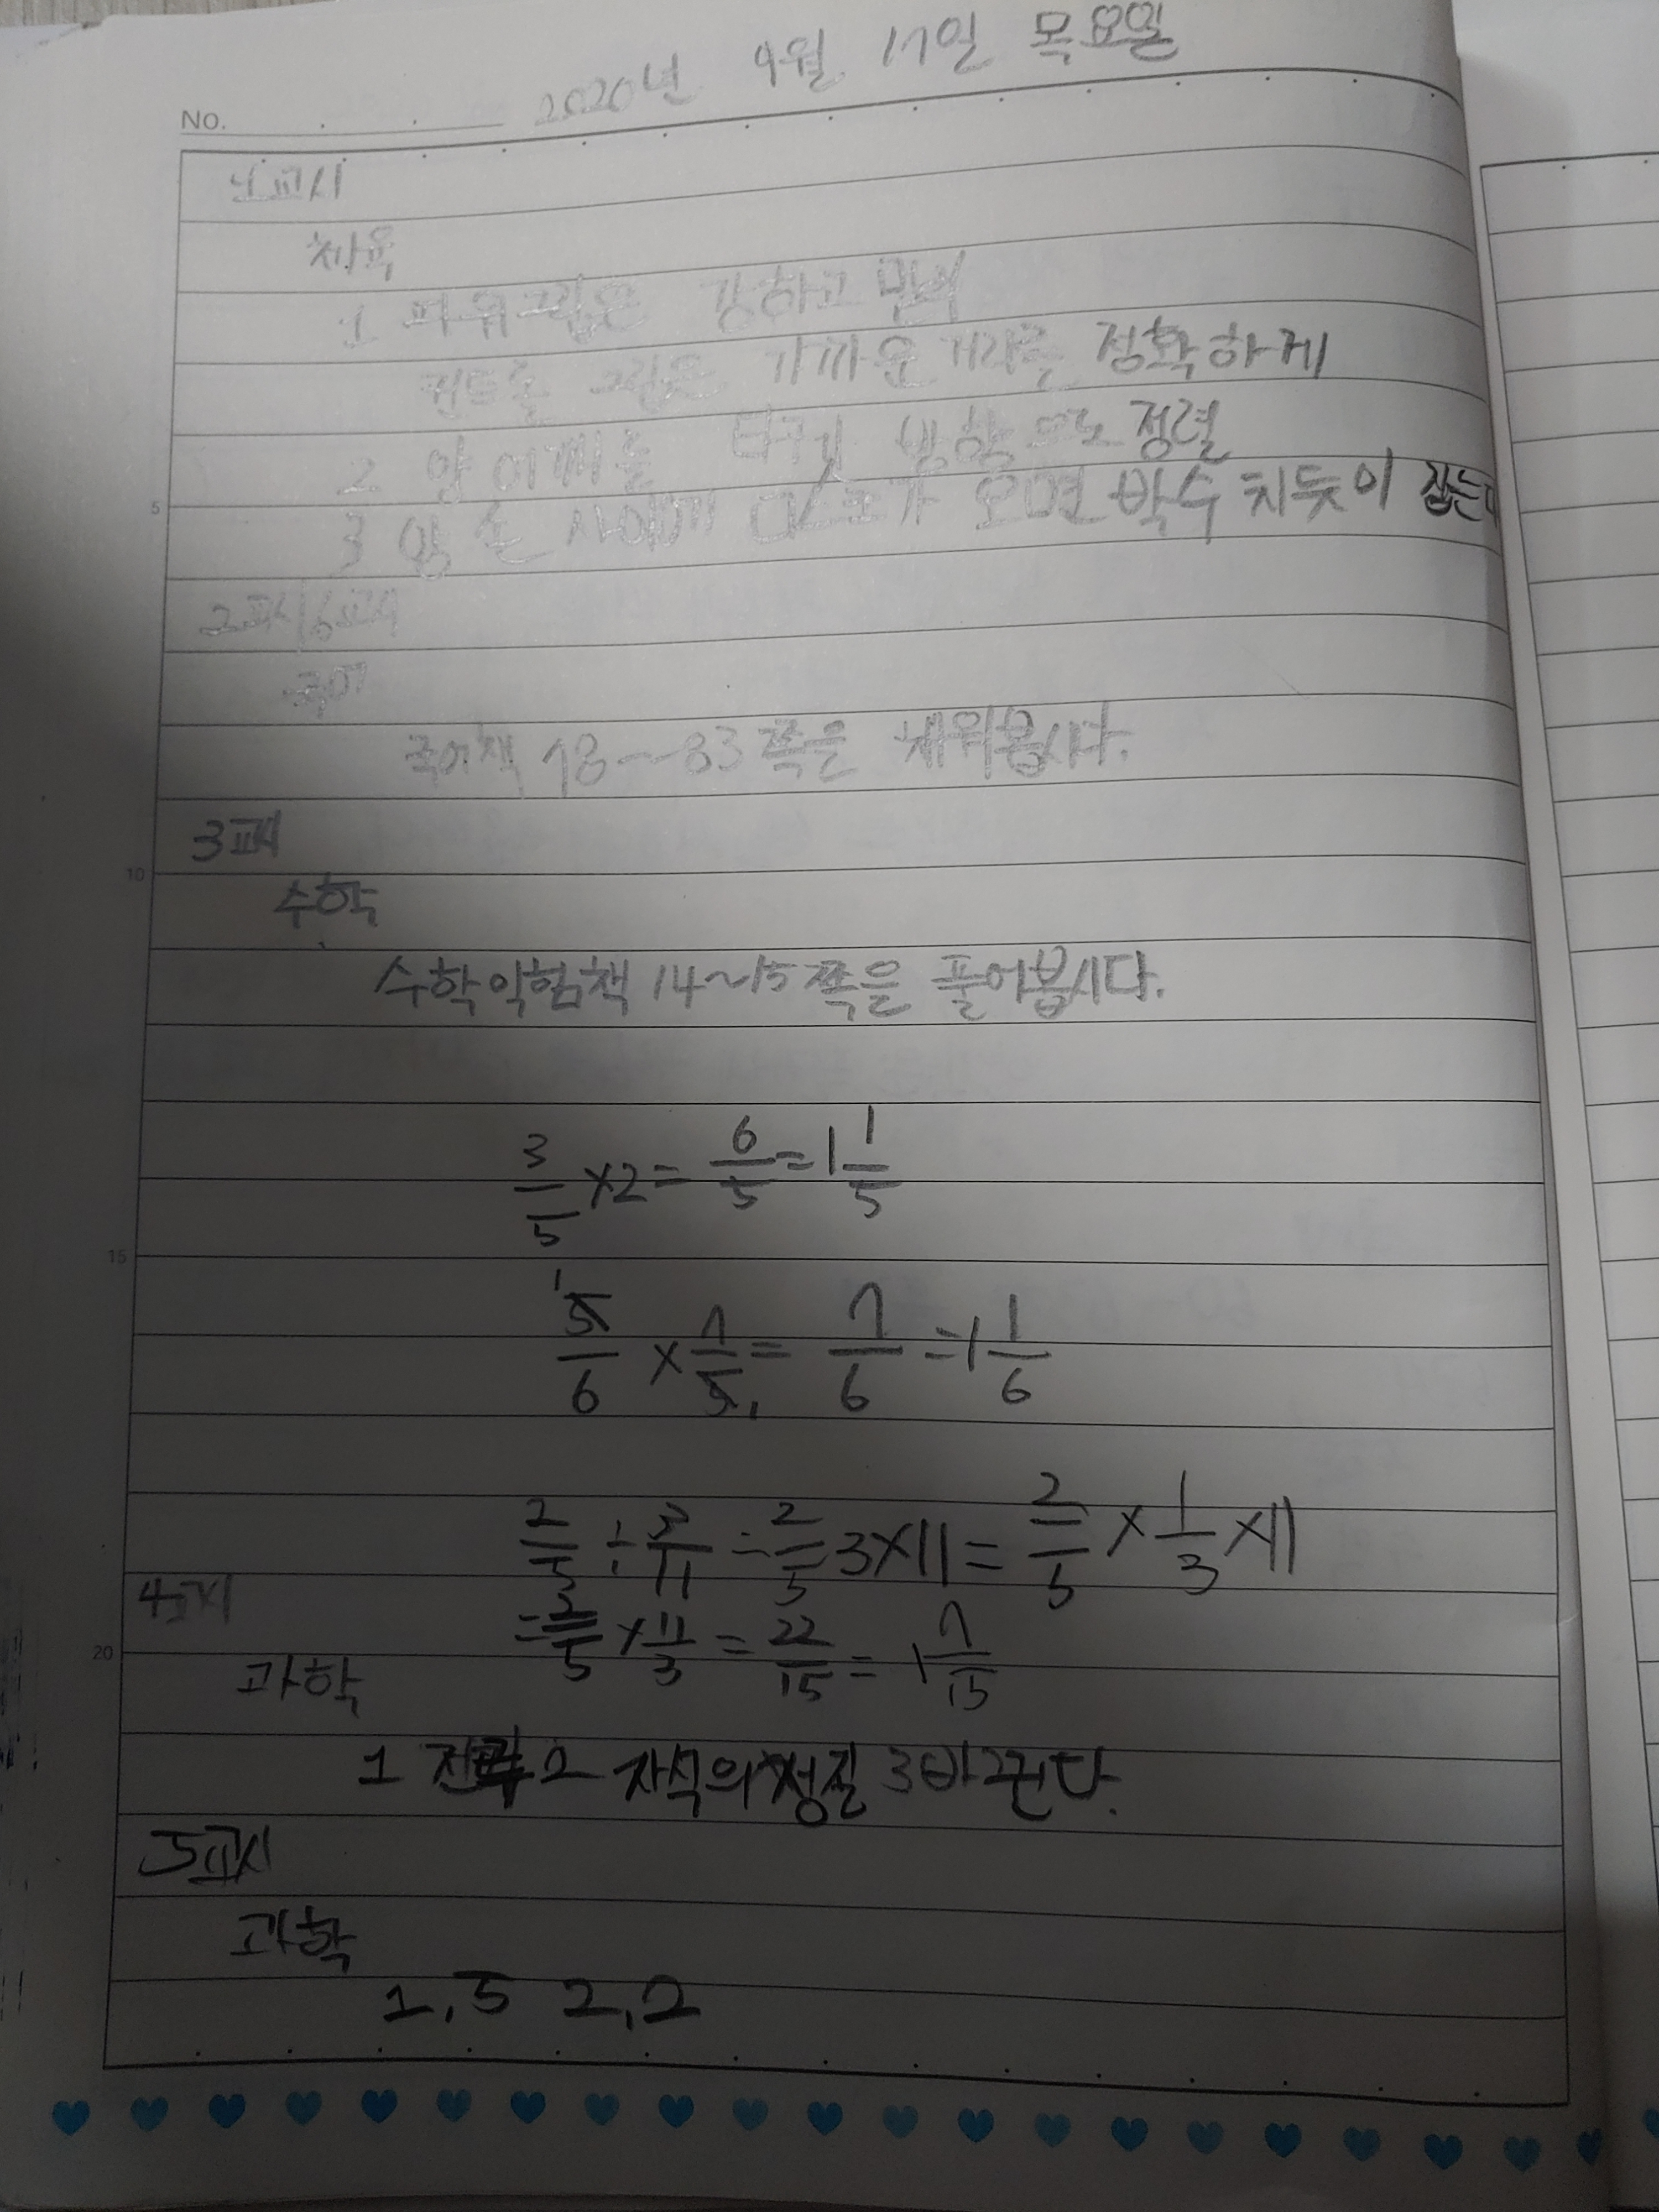 No. 2020년 9월 17일 목요일
1교시
체육
1 파워그립은 강하고 멀리
컨트롤 그립은 가까운 거리를 정확하게
2 양 어깨를 타겟 방향으로 정렬
5
3 양 손 사이에 디스크가 오면 박수 치듯이 잡는다
2교시/6교시
국어
국어책 78~83쪽을 채워봅시다.
3교시
10
수학
수학익힘책 14~15쪽을 풀어봅시다.
3/5 ×2= 6/5 =1 1/5
15
5/6 × 7/5 = 7/6 =1 1/6
2/5 ÷ 3/11 = 2/5 3×11= 2/5 × 1/3 ×11
4교시
= 2/5 × 11/3 = 22/15 = 1 7/15
20
과학
2 자석의 성질 3 바뀐다.
5교시
과학
1,5 2,2